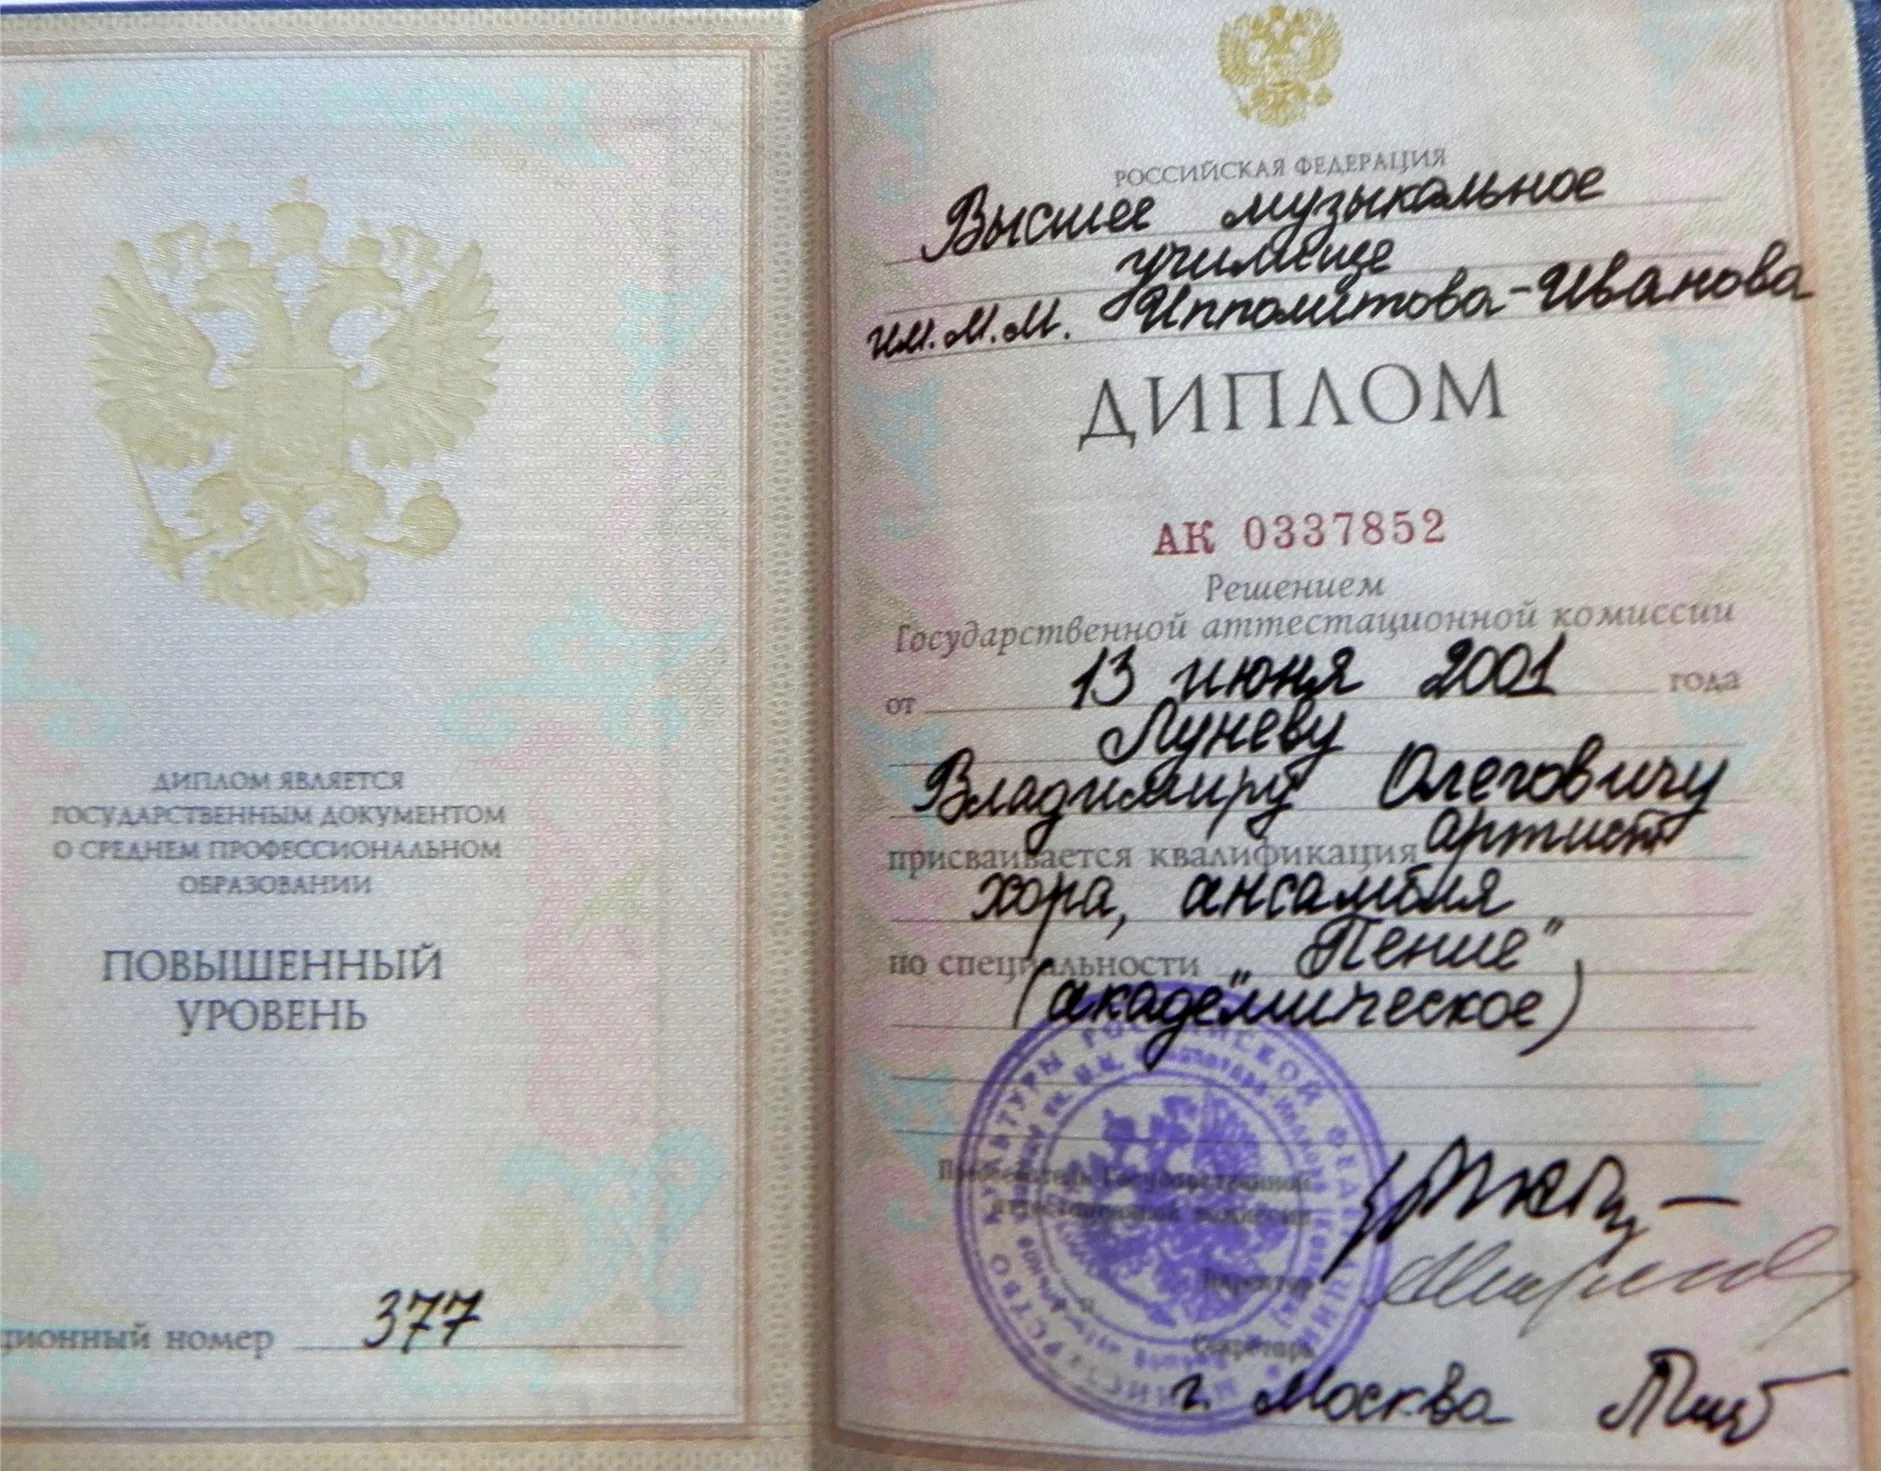 ДИПЛОМ ЯВЛЯЕТСЯ
ГОСУДАРСТВЕННЫМ ДОКУМЕНТОМ
О СРЕДНЕМ ПРОФЕССИОНАЛЬНОМ
ОБРАЗОВАНИИ
ПОВЫШЕННЫЙ
УРОВЕНЬ
ционный номер 377
РОССИЙСКАЯ ФЕДЕРАЦИЯ
Высшее музыкальное
училище
им. М.М. Ипполитова-Иванова
ДИПЛОМ
АК 0337852
Решением
Государственной аттестационной комиссии
от 13 июня 2001 года
Луневу
Владимиру Олеговичу
присваивается квалификация артист
хора, ансамбля
по специальности „Пение"
(академическое)
Председатель Государственной
аттестационной комиссии
Директор
Секретарь
г. Москва